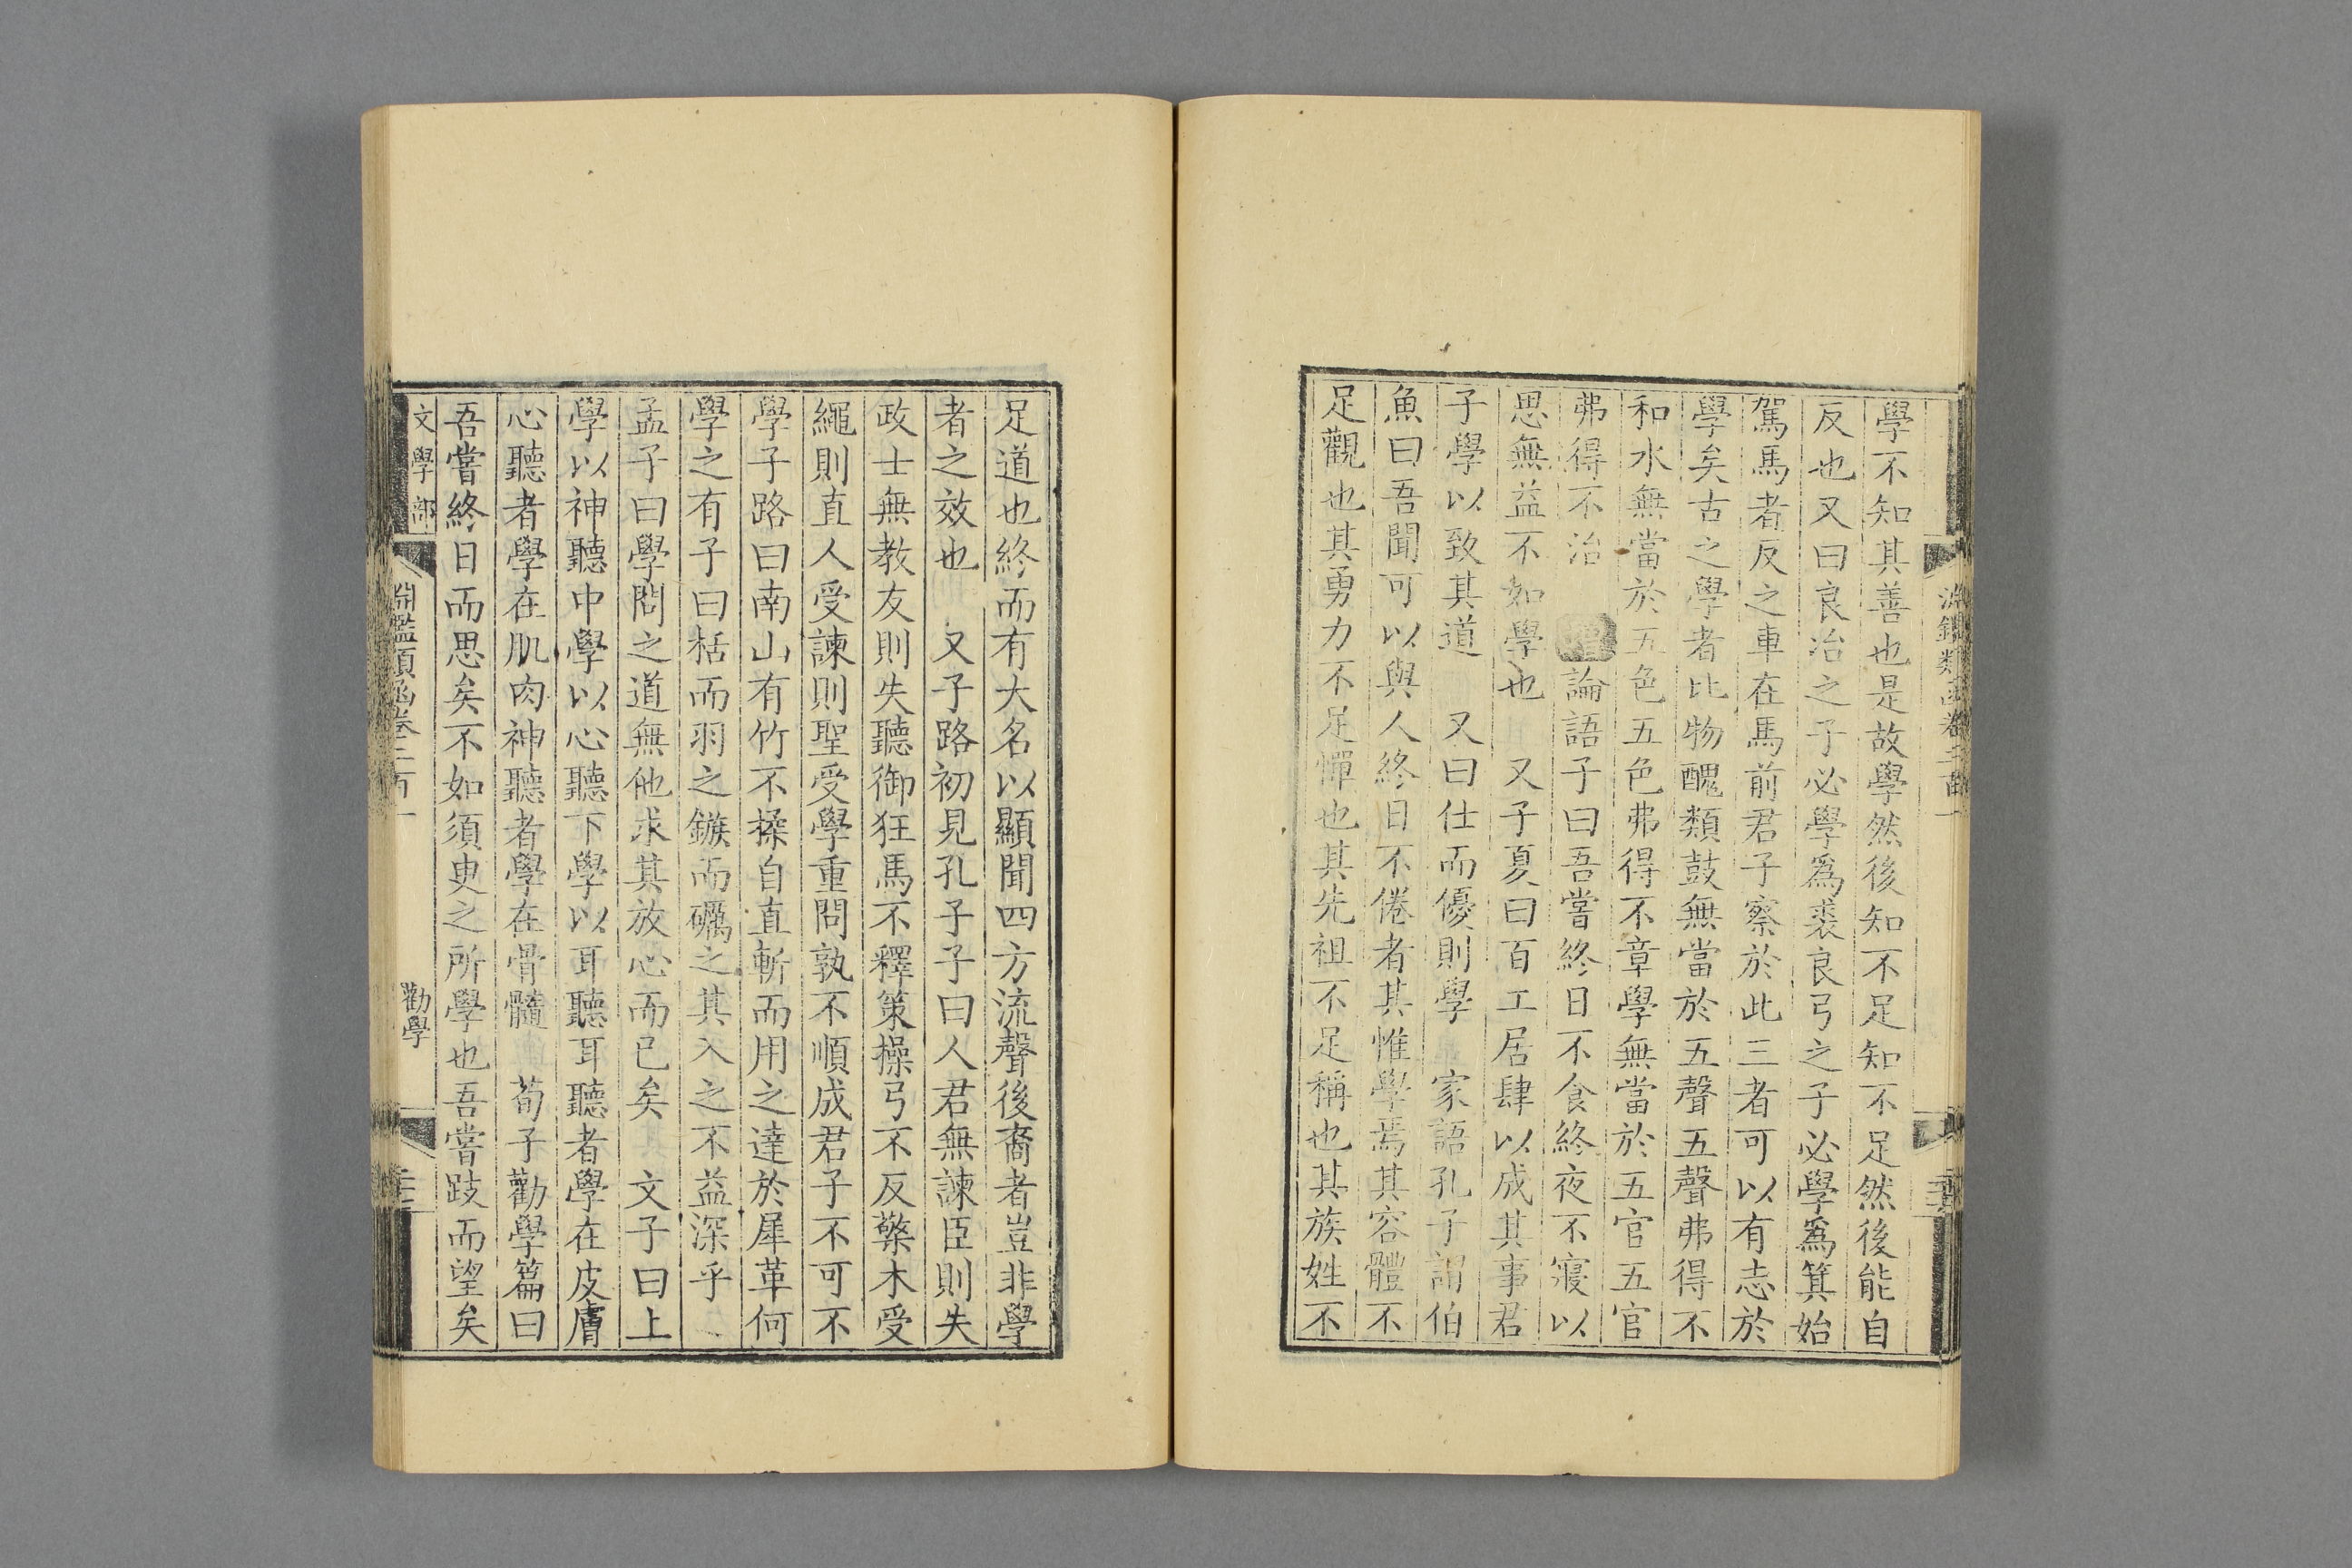 學不知其善也是故學然後知不足知不足然後能自
反也又曰良冶之子必學爲裘良弓之子必學爲箕始
駕馬者反之車在馬前君子察於此三者可以有志於
學矣古之學者比物醜類鼓無當於五聲五聲弗得不
和水無當於五色五色弗得不章學無當於五官五官
弗得不治 增論語子曰吾嘗終日不食終夜不寢以
思無益不如學也 又子夏曰百工居肆以成其事君
子學以致其道 又曰仕而優則學 家語孔子謂伯
魚曰吾聞可以與人終日不倦者其惟學焉其容體不
足觀也其勇力不足憚也其先祖不足稱也其族姓不
足道也終而有大名以顯聞四方流聲後裔者豈非學
者之效也 又子路初見孔子子曰人君無諫臣則失
政士無教友則失聽御狂馬不釋策操弓不反檠木受
繩則直人受諫則聖受學重問孰不順成君子不可不
學子路曰南山有竹不揉自直斬而用之達於犀革何
學之有子曰栝而羽之鏃而礪之其入之不益深乎
孟子曰學問之道無他求其放心而已矣 文子曰上
學以神聽中學以心聽下學以耳聽耳聽者學在皮膚
心聽者學在肌肉神聽者學在骨髓 荀子勸學篇曰
吾嘗終日而思矣不如須臾之所學也吾嘗跂而望矣
文學部 淵鑑類函卷二百一 勸學